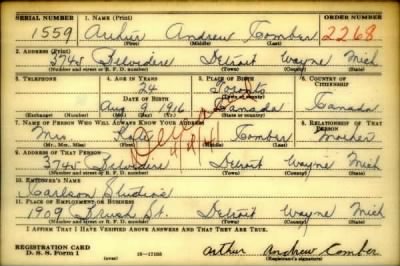 SERIAL NUMBER 1. NAME (Print) ORDER NUMBER
1559 Arthur Andrew Comber 2268
(First) (Middle) (Last)
2. ADDRESS (Print)
3745 Belvidere Detroit Wayne Mich
(Number and street or R. F. D. number) (Town) (County) (State)
3. TELEPHONE 4. AGE IN YEARS 5. PLACE OF BIRTH 6. COUNTRY OF CITIZENSHIP
24 Toronto
DATE OF BIRTH (Town or county)
Aug 9 1916 Canada Canada
(Exchange) (Number) (Mo.) (Day) (Yr.) (State or country)
7. NAME OF PERSON WHO WILL ALWAYS KNOW YOUR ADDRESS 8. RELATIONSHIP OF THAT PERSON
Mrs. Kate Comber Mother
(Mr., Mrs., Miss) (First) (Middle) (Last)
9. ADDRESS OF THAT PERSON
3745 Belvidere Detroit Wayne Mich
(Number and street or R. F. D. number) (Town) (County) (State)
10. EMPLOYER'S NAME
Carlson Studios
11. PLACE OF EMPLOYMENT OR BUSINESS
1909 Brush St. Detroit Wayne Mich
(Number and street or R. F. D. number) (Town) (County) (State)
I AFFIRM THAT I HAVE VERIFIED ABOVE ANSWERS AND THAT THEY ARE TRUE.
REGISTRATION CARD
D. S. S. Form 1 (over) 16—17105 Arthur Andrew Comber
(Registrant's signature)